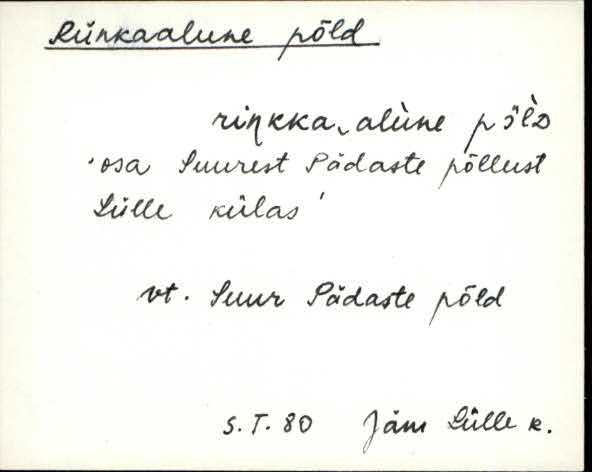 Rünkaalune põld
riŋkka‿alùne pö̀lD
'osa Suurest Pädaste põllust
Lülle külas'
vt. Suur Pädaste põld
S.T. 80 Jäm Lülle k.